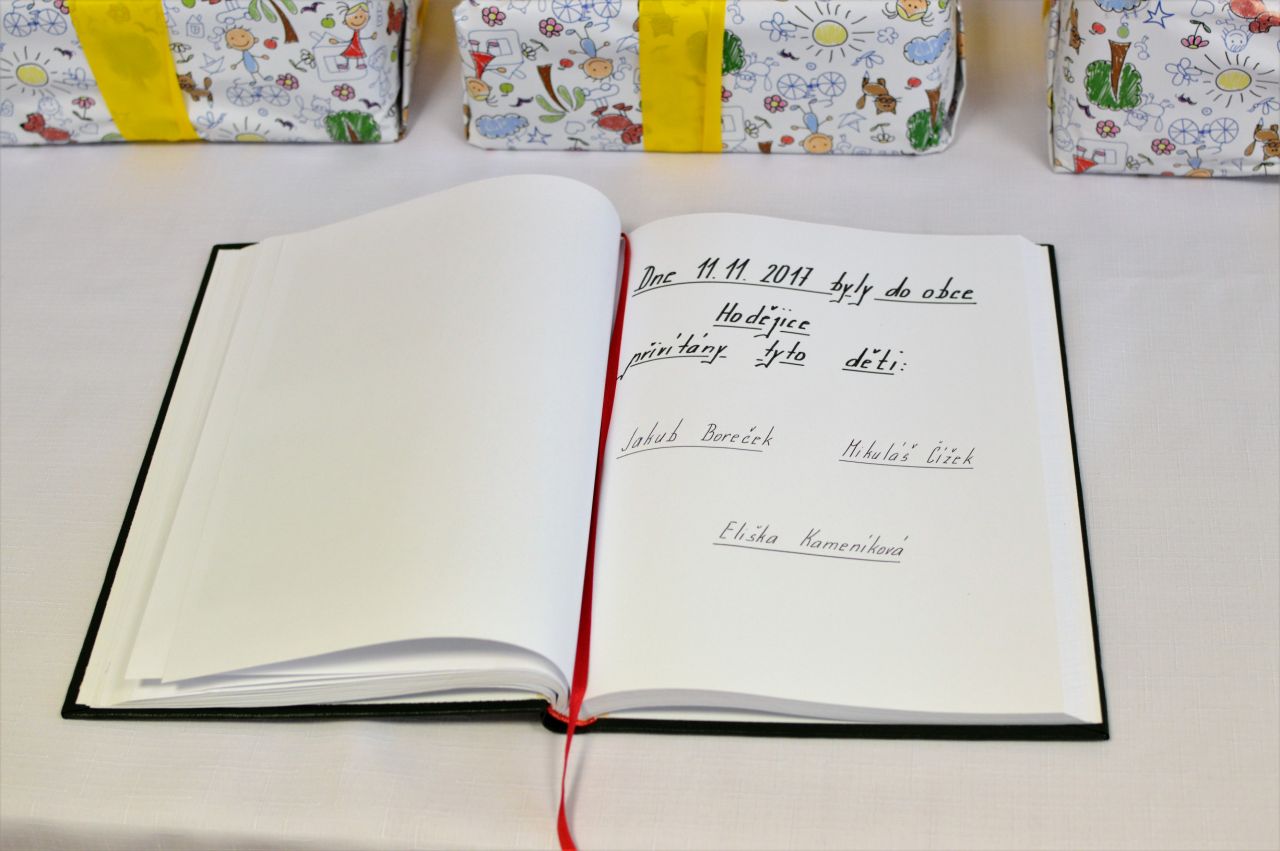 Dne 11.11. 2017 byly do obce
Hodějice
přivítány tyto děti:
Jakub Boreček Mikuláš Čížek
Eliška Kameníková